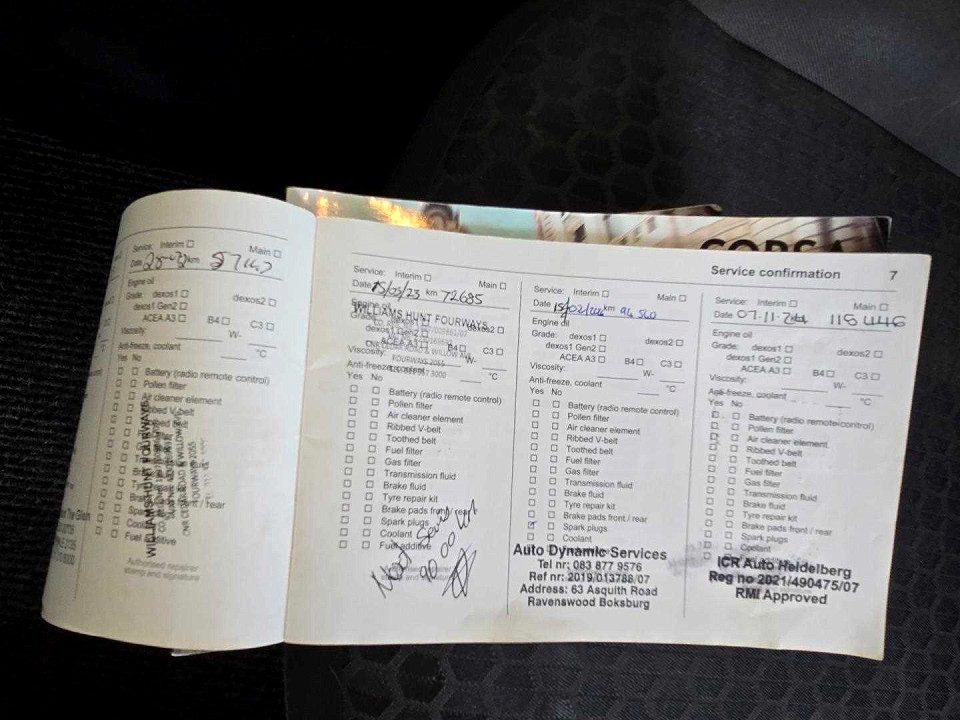 CORSA
Service confirmation 7
Service: Interim ☐ Main ☐
Date km
Engine oil
Grade: dexos1 ☐ dexos2 ☐
dexos1 Gen2 ☐
ACEA A3 ☐ B4 ☐ C3 ☐
Viscosity: W-
Anti-freeze, coolant °C
Yes No
☐ ☐ Battery (radio remote control)
☐ ☐ Pollen filter
☐ ☐ Air cleaner element
Ribbed V-belt
WILLIAMS HUNT FOURWAYS
CNR CEDAR ROAD & WILLOW AVE
FOURWAYS 2055
Fuel additive
Authorised repairer
stamp and signature
Service: Interim ☐ Main ☐
Date 15/05/23 km 72685
Engine oil
WILLIAMS HUNT FOURWAYS
Grade: dexos1 ☐ dexos2 ☐
dexos1 Gen2 ☐
ACEA A3 ☐ B4 ☐ C3 ☐
CNR CEDAR ROAD & WILLOW AVE
Viscosity: W-
FOURWAYS 2055
Anti-freeze, coolant °C
Yes No
☐ ☐ Battery (radio remote control)
☐ ☐ Pollen filter
☐ ☐ Air cleaner element
☐ ☐ Ribbed V-belt
☐ ☐ Toothed belt
☐ ☐ Fuel filter
☐ ☐ Gas filter
☐ ☐ Transmission fluid
☐ ☐ Brake fluid
☐ ☐ Tyre repair kit
☐ ☐ Brake pads front / rear
☐ ☐ Spark plugs
☐ ☐ Coolant
☐ ☐ Fuel additive
Next Service
90 000 km
Service: Interim ☐ Main ☐
Date 15/02/ km 94 560
Engine oil
Grade: dexos1 ☐ dexos2 ☐
dexos1 Gen2 ☐
ACEA A3 ☐ B4 ☐ C3 ☐
Viscosity: W-
Anti-freeze, coolant °C
Yes No
☐ ☐ Battery (radio remote control)
☐ ☐ Pollen filter
☐ ☐ Air cleaner element
☐ ☐ Ribbed V-belt
☐ ☐ Toothed belt
☐ ☐ Fuel filter
☐ ☐ Gas filter
☐ ☐ Transmission fluid
☐ ☐ Brake fluid
☐ ☐ Tyre repair kit
☐ ☐ Brake pads front / rear
☐ ☐ Spark plugs
☐ ☐ Coolant
Auto Dynamic Services
Tel nr: 083 877 9576
Ref nr: 2019/013788/07
Address: 63 Asquith Road
Ravenswood Boksburg
Service: Interim ☐ Main ☐
Date 07.11.2024 115 446
Engine oil
Grade: dexos1 ☐ dexos2 ☐
dexos1 Gen2 ☐
ACEA A3 ☐ B4 ☐ C3 ☐
Viscosity: W-
Anti-freeze, coolant °C
Yes No
☐ ☐ Battery (radio remote control)
☐ ☐ Pollen filter
☐ ☐ Air cleaner element
☐ ☐ Ribbed V-belt
☐ ☐ Toothed belt
☐ ☐ Fuel filter
☐ ☐ Gas filter
☐ ☐ Transmission fluid
☐ ☐ Brake fluid
☐ ☐ Tyre repair kit
☐ ☐ Brake pads front / rear
☐ ☐ Spark plugs
☐ ☐ Coolant
ICR Auto Heidelberg
Reg no 2021/490475/07
RMI Approved